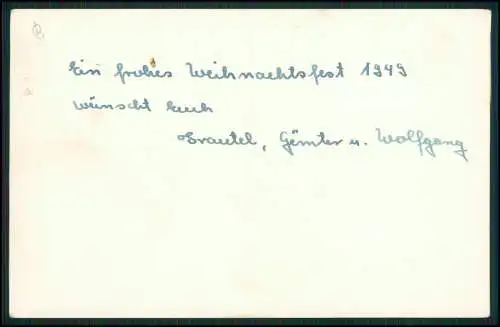 Ein frohes Weihnachtsfest 1949
wünscht Euch
Traudel, Günter u. Wolfgang